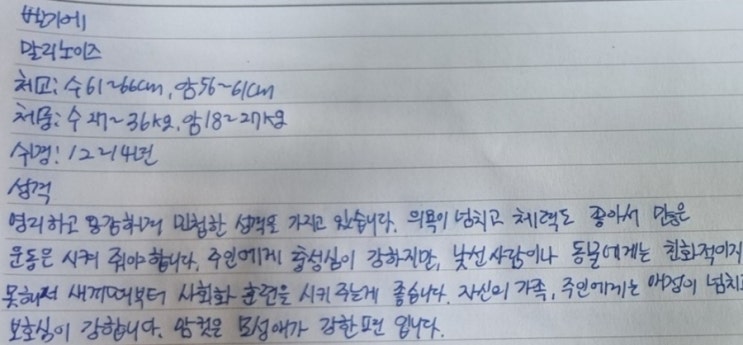 벨기에
말리노이즈
체고: 수 61~66cm, 암 56~61cm
체중: 수 27~36kg, 암 18~27kg
수명: 12~14년
성격
영리하고 용감하며 민첩한 성격을 가지고 있습니다. 의욕이 넘치고 체력도 좋아서 많은
운동을 시켜 줘야 합니다. 주인에게 충성심이 강하지만, 낯선 사람이나 동물에게는 친화적이지
못해서 새끼때부터 사회화 훈련을 시켜 주는게 좋습니다. 자신의 가족, 주인에게는 애정이 넘치고
보호심이 강합니다. 암컷은 모성애가 강한편 입니다.